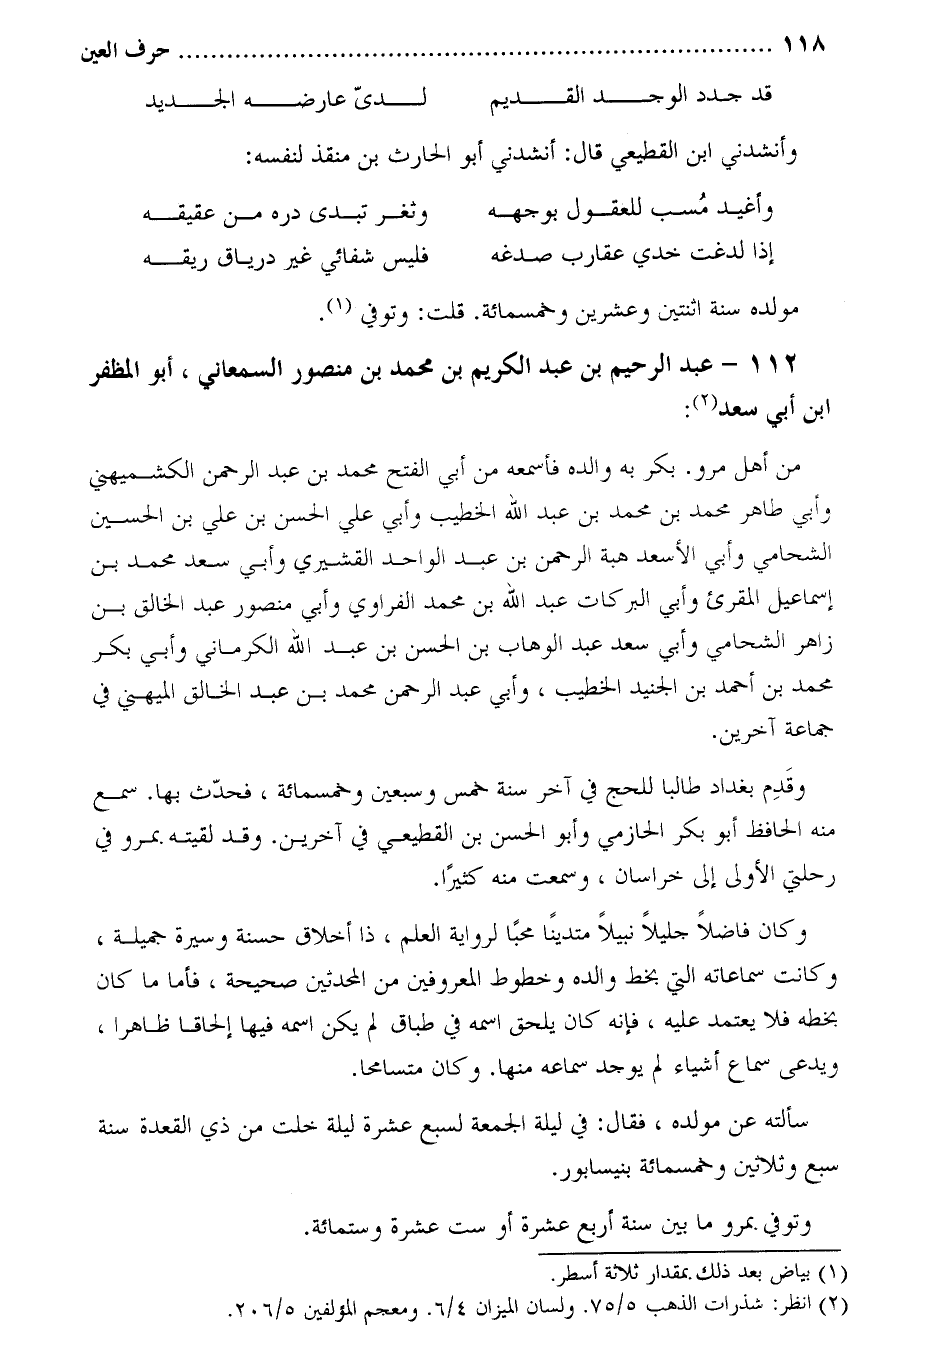 ١١٨ ........................................................................ حرف العين
قد جدد الوجـــــد القـــــديم لـــــديّ عارضـــــه الجـــــديد
وأنشدني ابن القطيعي قال: أنشدني أبو الحارث بن منقذ لنفسه:
وأغيـد مُسـب للعقـول بوجهـه وثغـر تبـدى دره مـن عقيقـه
إذا لدغت خدي عقارب صـدغه فليس شفائي غير درياق ريقـه
مولده سنة اثنتين وعشرين وخمسمائة. قلت: وتوفي (١).
١١٢ – عبد الرحيم بن عبد الكريم بن محمد بن منصور السمعاني ، أبو المظفر
ابن أبي سعد(٢):
من أهل مرو. بكر به والده فأسمعه من أبي الفتح محمد بن عبد الرحمن الكشـميهني
وأبي طاهر محمد بن محمد بن عبد الله الخطيب وأبي علي الحسن بن علي بن الحسـين
الشحامي وأبي الأسعد هبة الرحمن بن عبـد الواحـد القشـيري وأبـي سـعد محمـد بـن
إسماعيل المقرئ وأبي البركات عبد الله بن محمد الفراوي وأبي منصور عبد الخالق بـن
زاهر الشحامي وأبي سعد عبد الوهاب بن الحسن بن عبـد الله الكرمـاني وأبـي بكـر
محمد بن أحمد بن الجنيد الخطيب ، وأبي عبد الرحمن محمد بـن عبـد الخـالق الميهـني في
جماعة آخرين.
وقَدِم بغداد طالبا للحج في آخر سنة خمس وسبعين وخمسمائة ، فحدّث بها. سمـع
منه الحافظ أبو بكر الحازمي وأبو الحسن بن القطيعـي في آخريـن. وقـد لقيتـه بمرو في
رحلتي الأولى إلى خراسان ، وسمعت منه كثيرًا.
وكان فاضلاً جليلاً نبيلاً متدينًا محبًا لرواية العلم ، ذا أخلاق حسنة وسيرة جميلـة ،
وكانت سماعاته التي بخط والده وخطوط المعروفين من المحدثين صحيحة ، فأما ما كان
بخطه فلا يعتمد عليه ، فإنه كان يلحق اسمه في طباق لم يكن اسمه فيها إلحاقـا ظـاهرا ،
ويدعى سماع أشياء لم يوجد سماعه منها. وكان متسامحا.
سألته عن مولده ، فقال: في ليلة الجمعة لسبع عشرة ليلة خلت من ذي القعدة سنة
سبع وثلاثين وخمسمائة بنيسابور.
وتوفي بمرو ما بين سنة أربع عشرة أو ست عشرة وستمائة.
(١) بياض بعد ذلك بمقدار ثلاثة أسطر.
(٢) انظر: شذرات الذهب ٧٥/٥. ولسان الميزان ٦/٤. ومعجم المؤلفين ٢٠٦/٥.